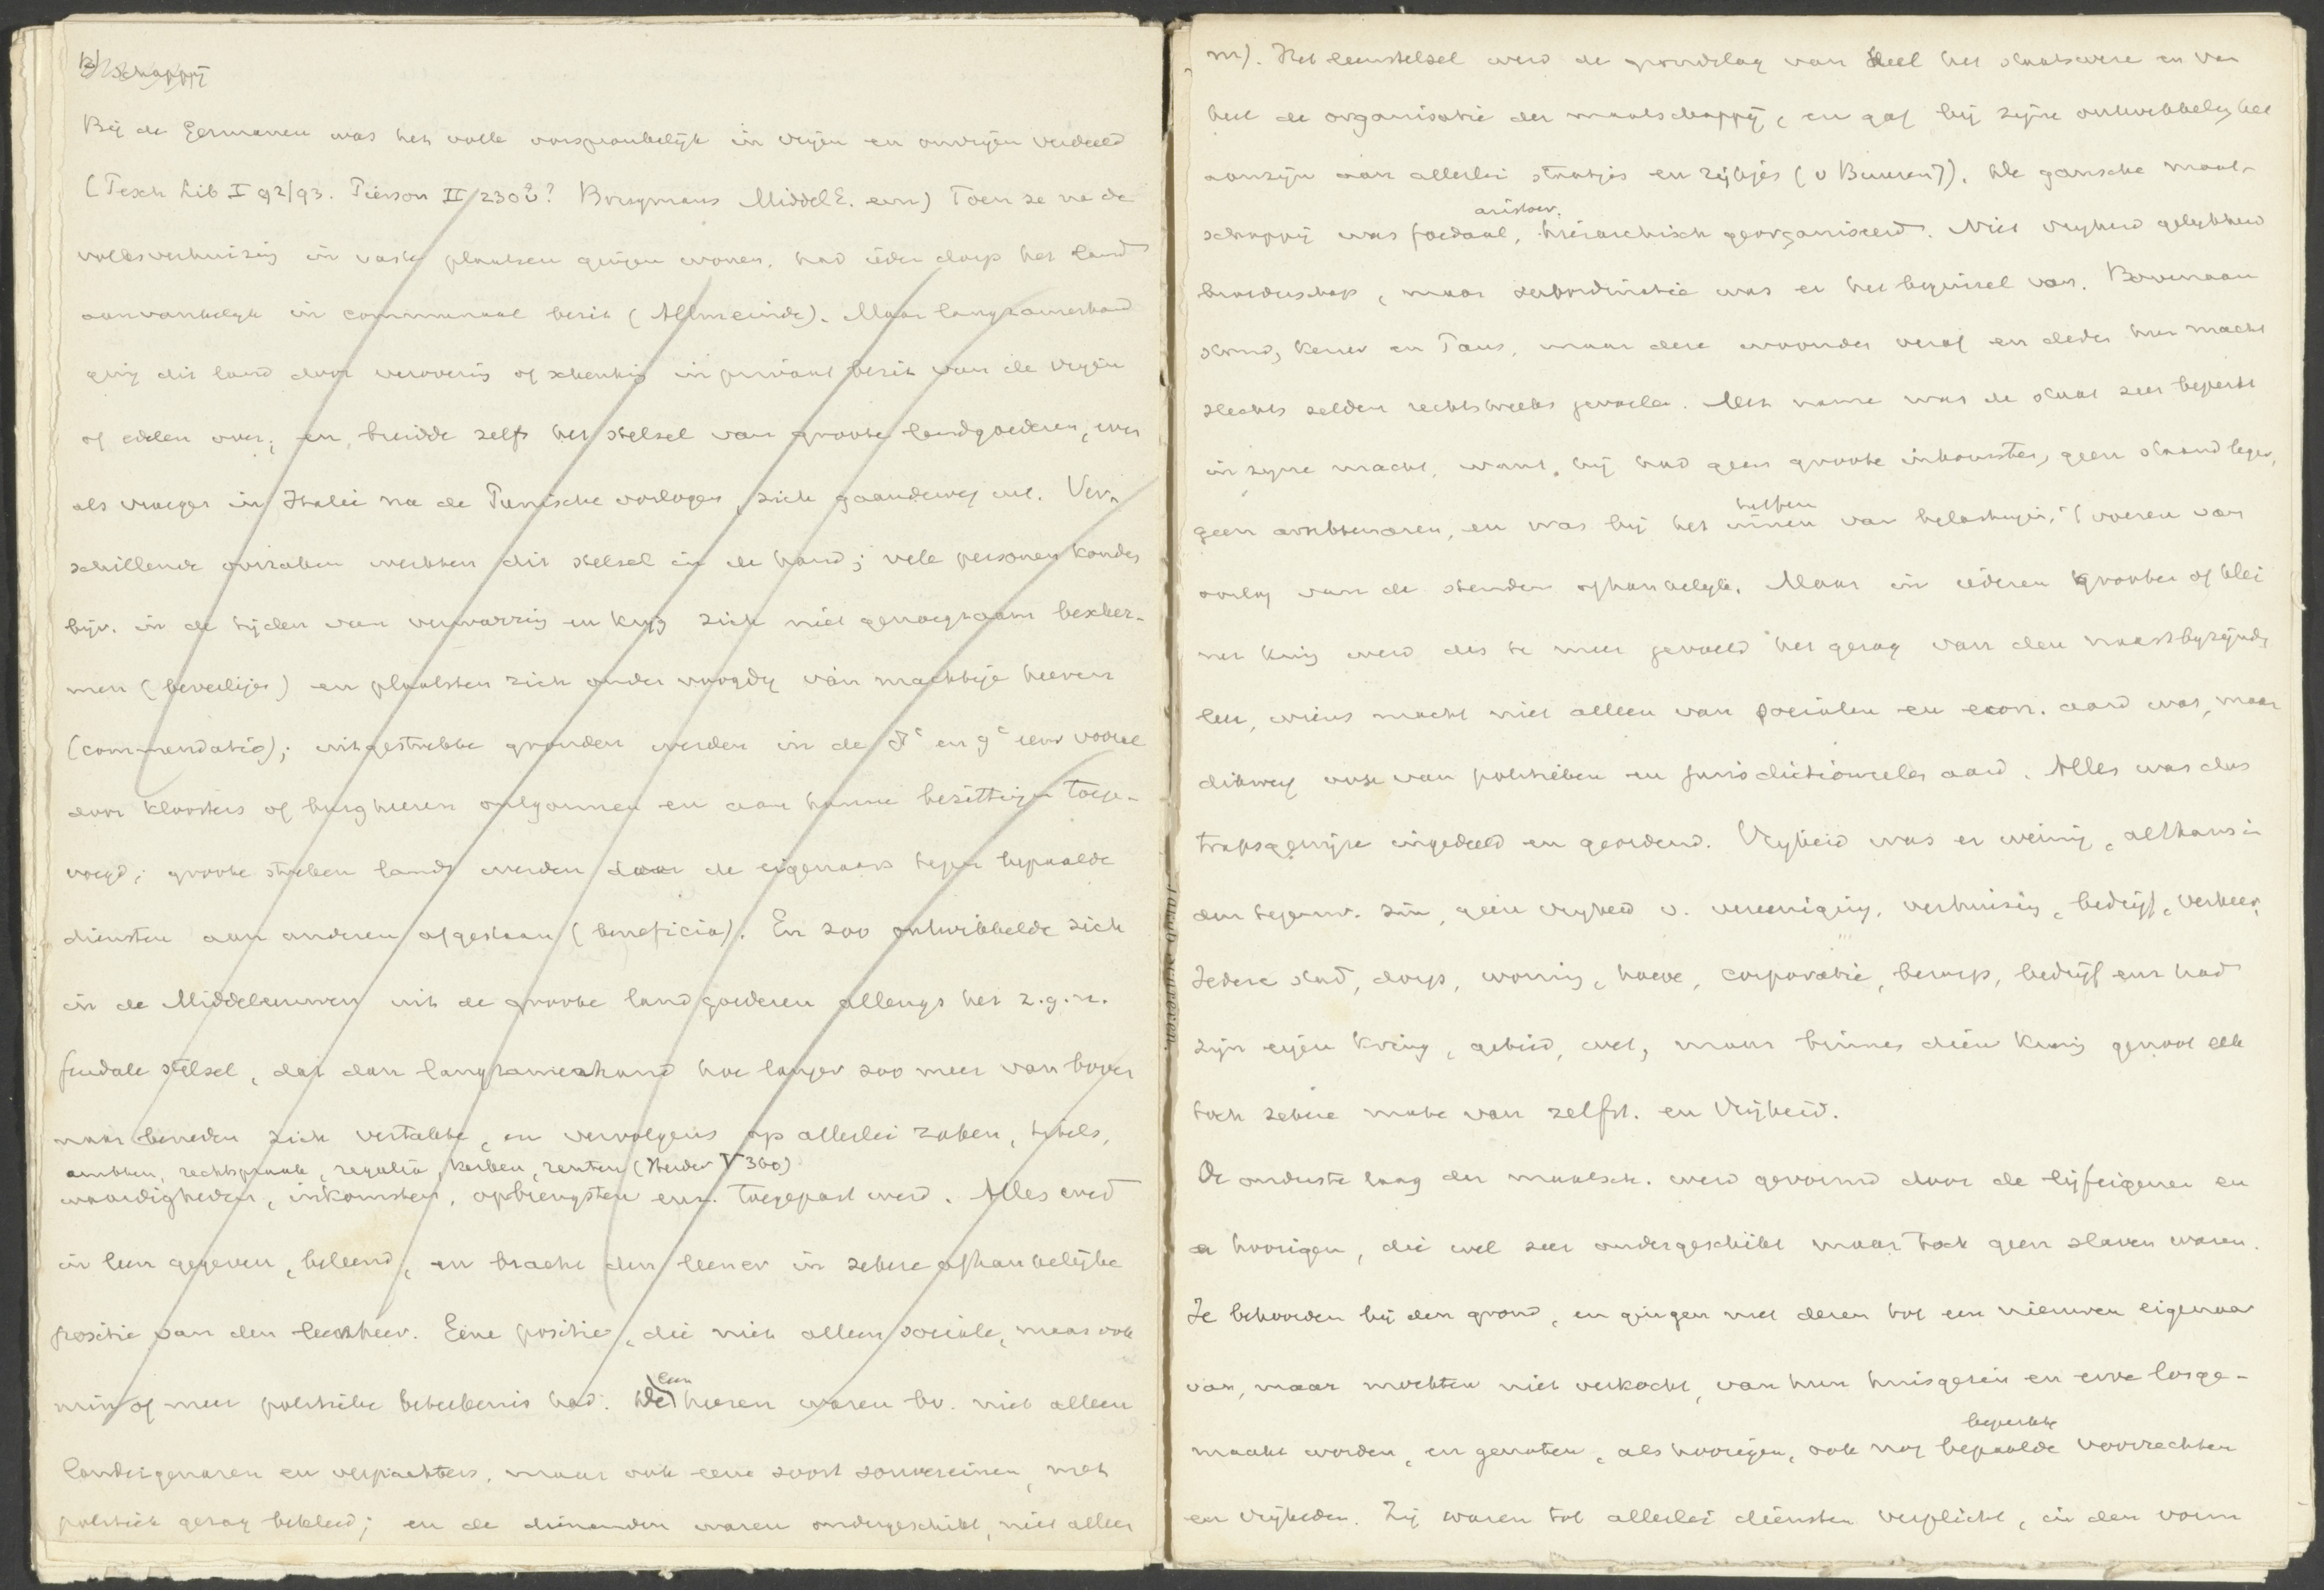 schappij
Bij de Germanen was het volk oorspronkelijk in vrijen en onvrijen verdeeld
(Tesch Lib I 92/93. Pierson II/230 ? Middel E. eeuw) Toen ze na de
volksverhuizing in vaste plaatsen gingen wonen, had ieder dorp het land
aanvankelijk in communaal bezit (Allmeinde). Maar langzamerhand
ging dit land door verovering of schenking in privaat bezit van de vrijen
of edelen over; en breidde zelfs het stelsel van groote landgoederen, even
als vroeger in Italië na de Punische oorlogen, zich gaandeweg uit. Ver-
schillende oorzaken werkten dit stelsel in de hand; vele personen konden
bijv. in de tijden van verwarring en krijg zich niet genoegzaam bescher-
men (beveiligen) en plaatsten zich onder voogdij van machtige heeren
(commendatio); uitgestrekte gronden werden in de 8e en 9e eeuw vooral
door kloosters of burgheeren ontgonnen en aan hunne bezittingen toege-
voegd; groote streken lands werden door de eigenaars tegen bepaalde
diensten aan anderen afgestaan (beneficia). En zoo ontwikkelde zich
in de Middeleeuwen uit de groote landgoederen allengs het z.g.n.
feudale stelsel, dat dan langzamerhand hoe langer zoo meer van boven
naar beneden zich vertakte, en vervolgens op allerlei zaken, titels,
ambten, rechtspraak, regalia, kerken, renten (Herder V 360)
waardigheden, inkomsten, opbrengsten enz. toegepast werd. Alles werd
in leen gegeven, beleend, en bracht den leener in zekere afhankelijke
positie van den leenheer. Eene positie, die niet alleen sociale, maar ook
min of meer politieke beteekenis had. De leenheeren waren bv. niet alleen
landeigenaren en verpachters, maar ook eene soort souvereinen, met
politiek gezag bekleed; en de dienenden waren ondergeschikt, niet alleen
m). Het leenstelsel werd de grondslag van heel het staatswezen en van
heel de organisatie der maatschappij, en gaf bij zijne ontwikkeling het
aanzijn aan allerlei staatjes en rijkjes (v Buuren 7). De gansche maat-
schappij was foedaal, aristocr. hierarchisch georganiseerd. Niet vrijheid gelijkheid
broederschap, maar subordinatie was er het beginsel van. Bovenaan
stond, Keizer en Paus, maar deze woonden veraf en deden hun macht
slechts zelden rechtstreeks gevoelen. Met name was de staat zeer beperkt
in zijne macht, want hij had geen groote inkomsten, geen staand leger,
geen ambtenaren, en was bij het heffen innen van belastingen, 't voeren van
oorlog van de stenden afhankelijk. Maar in iederen grooten of klei
nen kring werd des te meer gevoeld het gezag van den naastbijzijnden
heer, wiens macht niet alleen van socialen en econ. aard was, maar
dikwerf ook van politieken en jurisdictioneelen aard. Alles was dus
trapsgewijze ingedeeld en geordend. Vrijheid was er weinig, althans in
den tegenw. zin, geen vrijheid v. vereeniging, verhuizing, bedrijf, verkeer,
Iedere stad, dorp, woning, hoeve, corporatie, beroep, bedrijf enz had
zijn eigen kring, gebied, wet, maar binnen dien kring genoot elk
toch zekere mate van zelfst. en vrijheid.
De onderste laag der maatsch. werd gevormd door de lijfeigenen en
hoorigen, die wel zeer ondergeschikt maar toch geen slaven waren.
Ze behoorden bij den grond, en gingen met dezen tot een nieuwen eigenaar
over, maar mochten niet verkocht, van hun huisgezin en erve losge-
maakt worden, en genoten, als hoorigen, ook nog beperkte bepaalde voorrechten
en vrijheden. Zij waren tot allerlei diensten verplicht, in den vorm